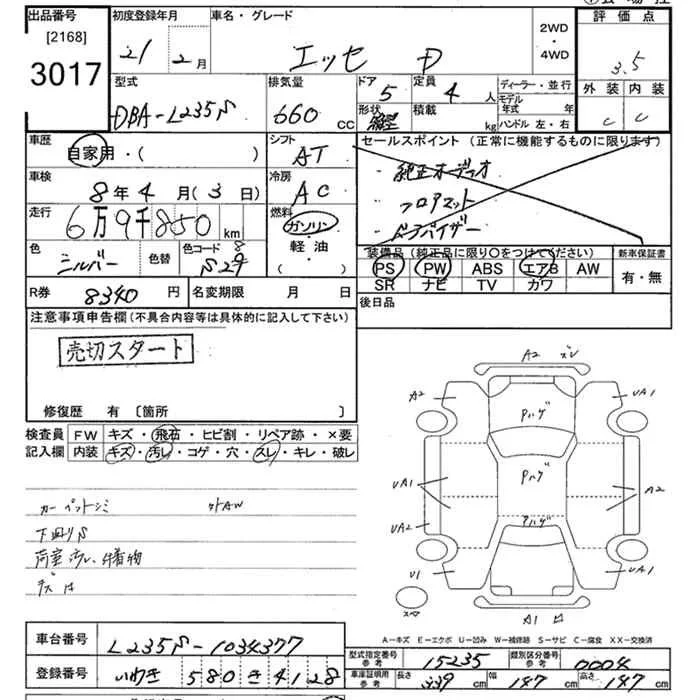 出品番号 初度登録年月 車名・グレード 2WD・4WD 評価点
[2168]
3017
21 2月 エッセ D 3.5
型式 排気量 ドア 5 定員 4人 ディーラー・並行 外装 内装
DBA-L235S 660 CC 形状 積載 kg モデル年式 年 ハンドル 左・右 C C
車歴 自家用・( ) シフト AT セールスポイント (正常に機能するものに限ります)
車検 8年4月(3日) 冷房 AC ・純正オーディオ
・フロアマット
・ドアバイザー
走行 6万9千850km 燃料 ガソリン・軽油・( )
色 シルバー 色替 色コード S28
装備品 (純正品に限り○をつけてください) 新車保証書
PS PW ABS エアB AW 有・無
SR ナビ TV カワ
R券 8340円 名変期限 月 日 後日品
注意事項申告欄(不具合内容等は具体的に記入して下さい)
売切スタート
修復歴 有 〔箇所 〕
検査員 FW キズ・飛石・ヒビ割・リペア跡・×要
記入欄 内装 キズ・汚レ・コゲ・穴・スレ・キレ・破レ
カーペットシミ 外AW
下回りS
荷室汚レ、付着物
A2 ズレ
A2 UA1
Pハゲ
UA1 Pハゲ A2
UA2 Pハゲ
U1 UA1
スペア A1
A-キズ E-エクボ U-凹み W-補修跡 S-サビ C-腐食 XX-交換済
車台番号 L235S-1034377
登録番号 いわき 580 き 4128
型式指定番号 参考 15235 類別区分番号 参考 0004
車庫証明用 参考 長さ 339cm 幅 147cm 高さ 147cm